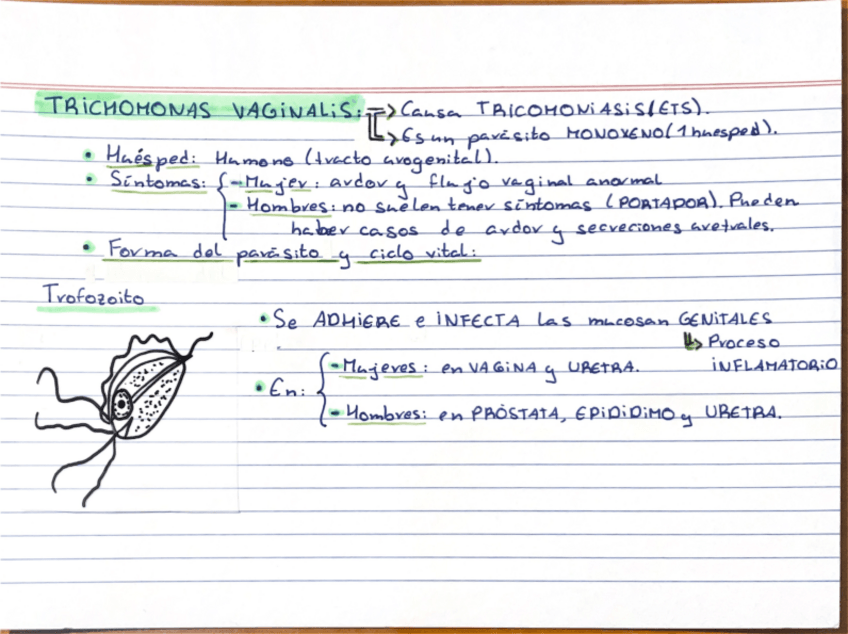 TRICHOMONAS VAGINALIS: → Causa TRICOMONIASIS (ETS).
→ Es un parásito MONOXENO (1 huesped).
• Huésped: Humano (tracto urogenital).
• Síntomas: - Mujer: ardor y flujo vaginal anormal
- Hombres: no suelen tener síntomas (PORTADOR). Pueden
haber casos de ardor y secreciones uretrales.
• Forma del parásito y ciclo vital:
Trofozoito
• Se ADHIERE e INFECTA las mucosan GENITALES
↳ Proceso
INFLAMATORIO
• En: - Mujeres: en VAGINA y URETRA.
- Hombres: en PRÓSTATA, EPIDIDIMO y URETRA.